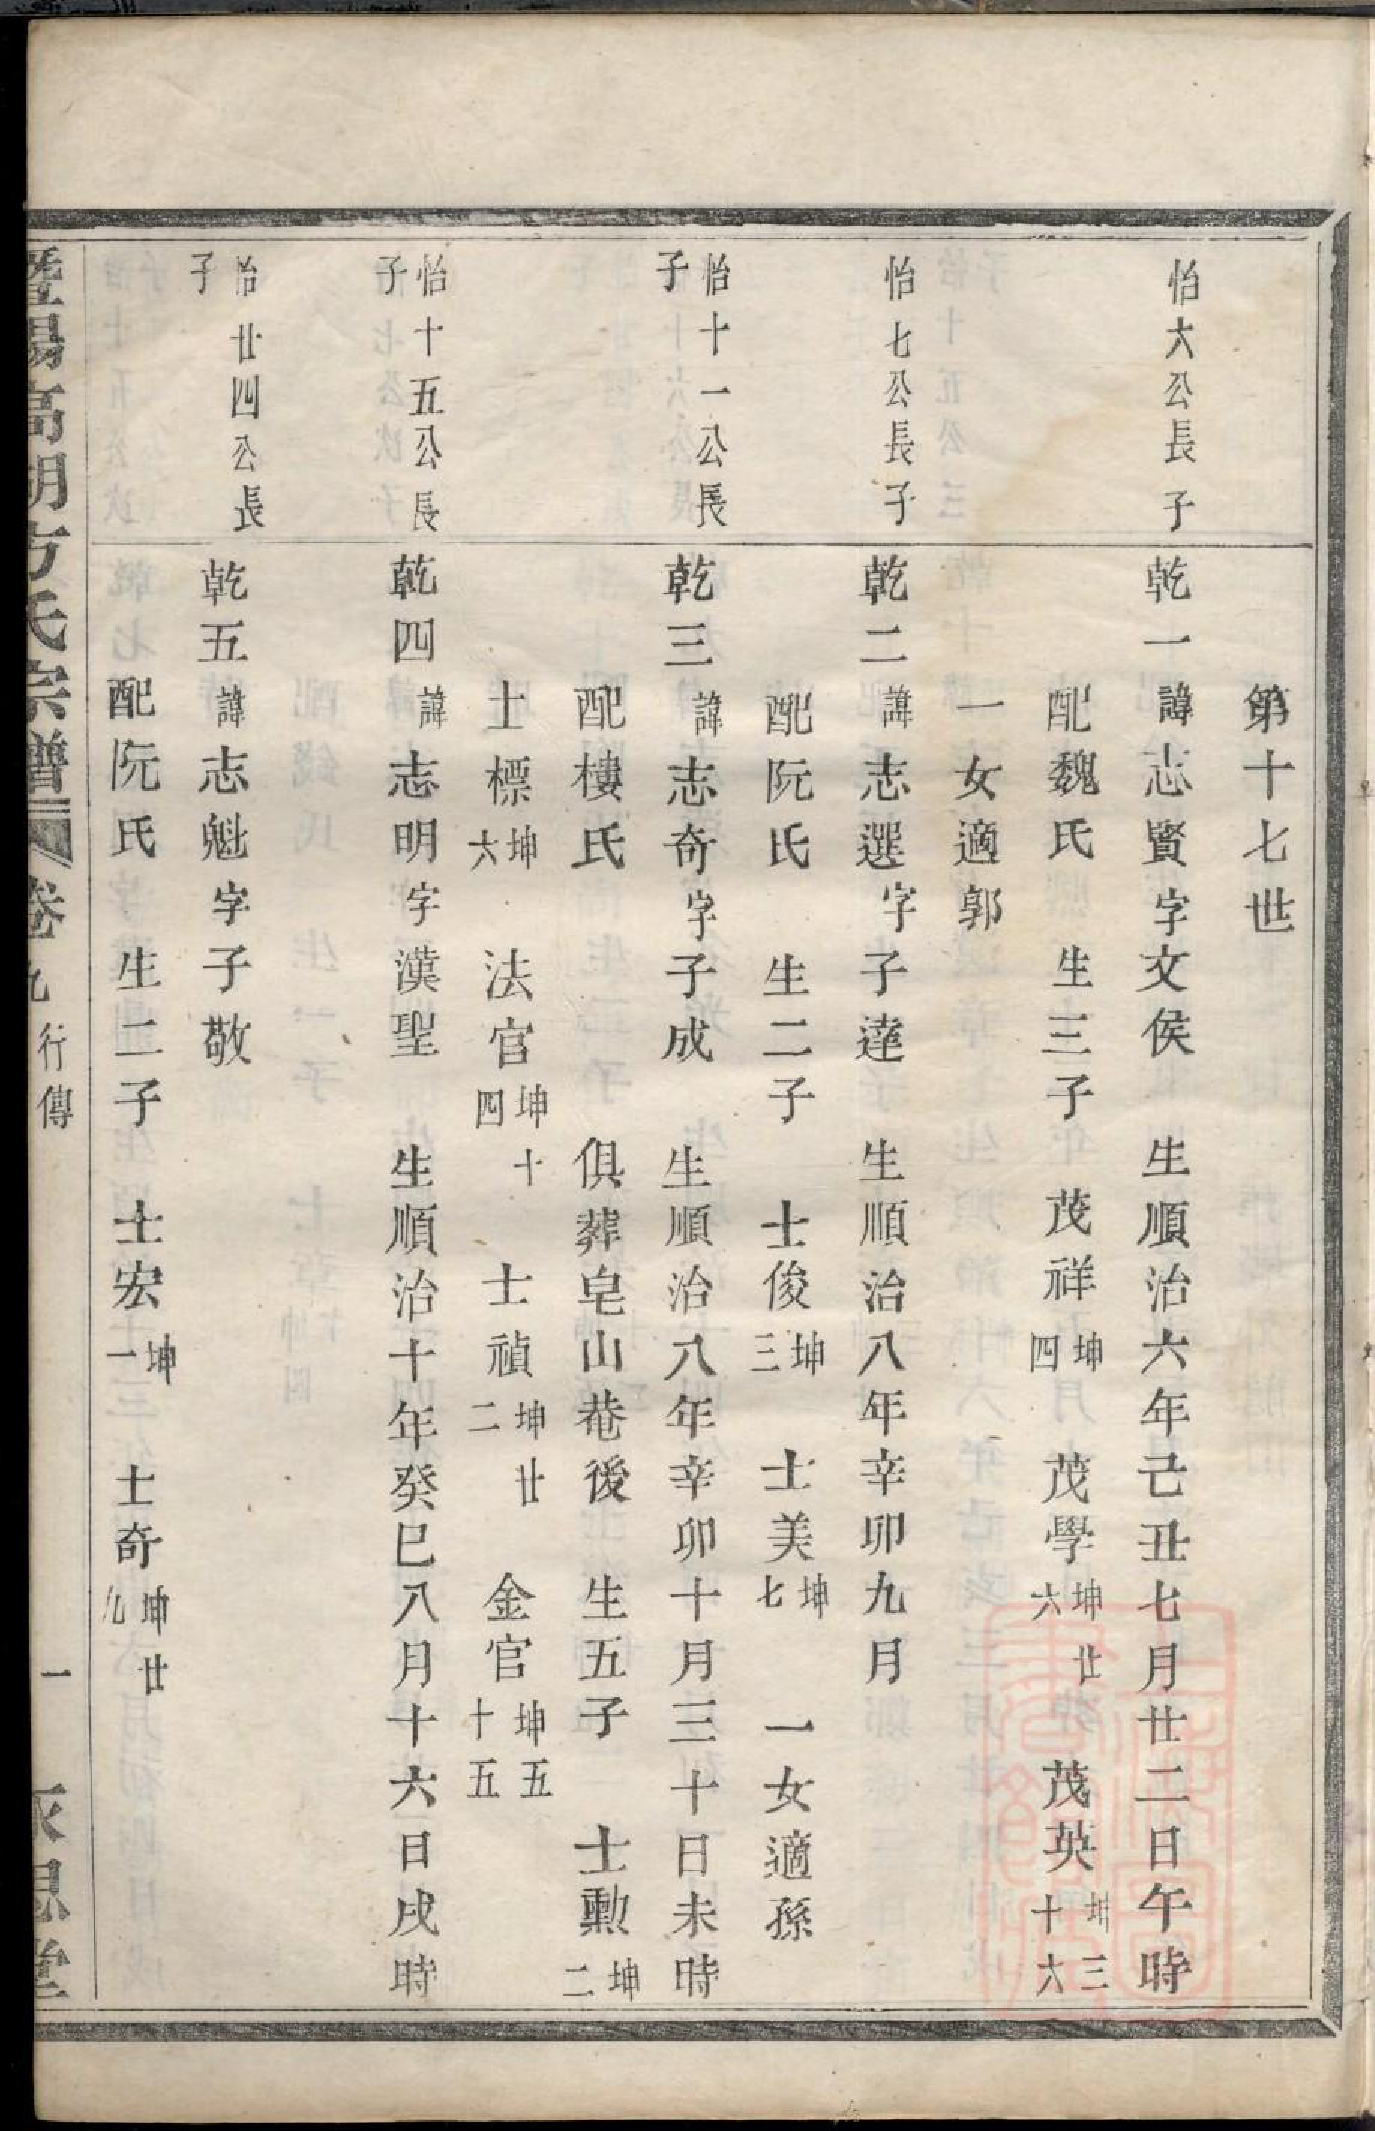 第十七世
怡六公長子
乾一諱志賢字文侯 生順治六年己丑七月廿二日午時
配魏氏 生三子 茂祥坤四 茂學坤廿六 茂英坤三十六
一女適郭
怡七公長子
乾二諱志選字子達 生順治八年辛卯九月
配阮氏 生二子 士俊坤三 士美坤七 一女適孫
怡十一公長子
乾三諱志奇字子成 生順治八年辛卯十月三十日未時
配樓氏 俱葬皂山菴後 生五子 士勳坤二
士標坤六 法官坤十四 士禎坤廿二 金官坤五十五
怡十五公長子
乾四諱志明字漢聖 生順治十年癸巳八月十六日戌時
怡廿四公長子
乾五諱志魁字子敬
配阮氏 生二子 士宏坤一 士奇坤廿九
暨陽高湖方氏宗譜 卷九 行傳 一 永思堂